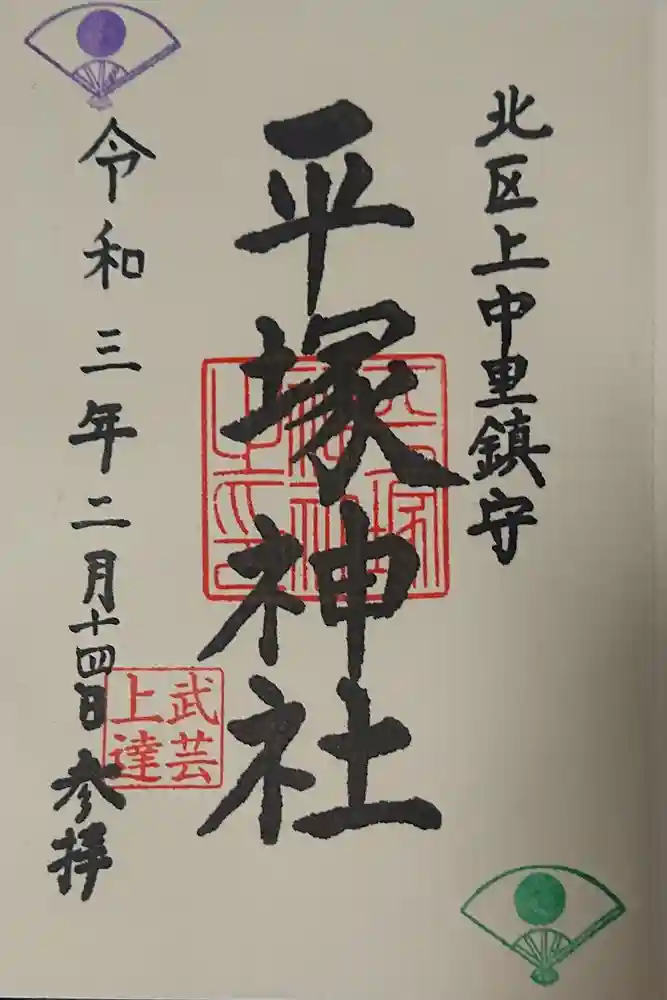 北区上中里鎮守
平塚神社
平塚神社之印
武芸上達
令和三年二月十四日参拝